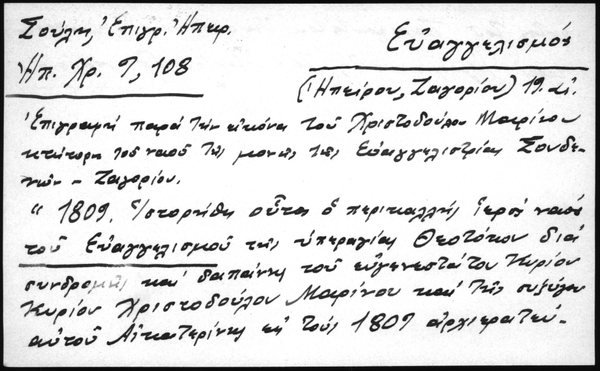 Σούλη, Ἐπιγρ. Ἠπειρ.
Ἠπ. Χρ. 9, 108
Εὐαγγελισμός
(Ἠπείρου, Ζαγορίου) 19. αἰ.
Ἐπιγραφή παρά τήν εἰκόνα τοῦ Χριστοδούλου Μαρίνου
κτίτορος τοῦ ναοῦ τῆς μονῆς τῆς Εὐαγγελιστρίας Σουδε-
νῶν - Ζαγορίου.
" 1809. Ἱστορήθη οὗτος ὁ περικαλλής ἱερός ναός
τοῦ Εὐαγγελισμοῦ τῆς ὑπεραγίας Θεοτόκου διά
συνδρομῆς καί δαπάνης τοῦ εὐγενεστάτου Κυρίου
Κυρίου Χριστοδούλου Μαρίνου καί τῆς συζύγου
αὐτοῦ Αἰκατερίνης ἐς τούς 1809 ἀρχιερατεύ-